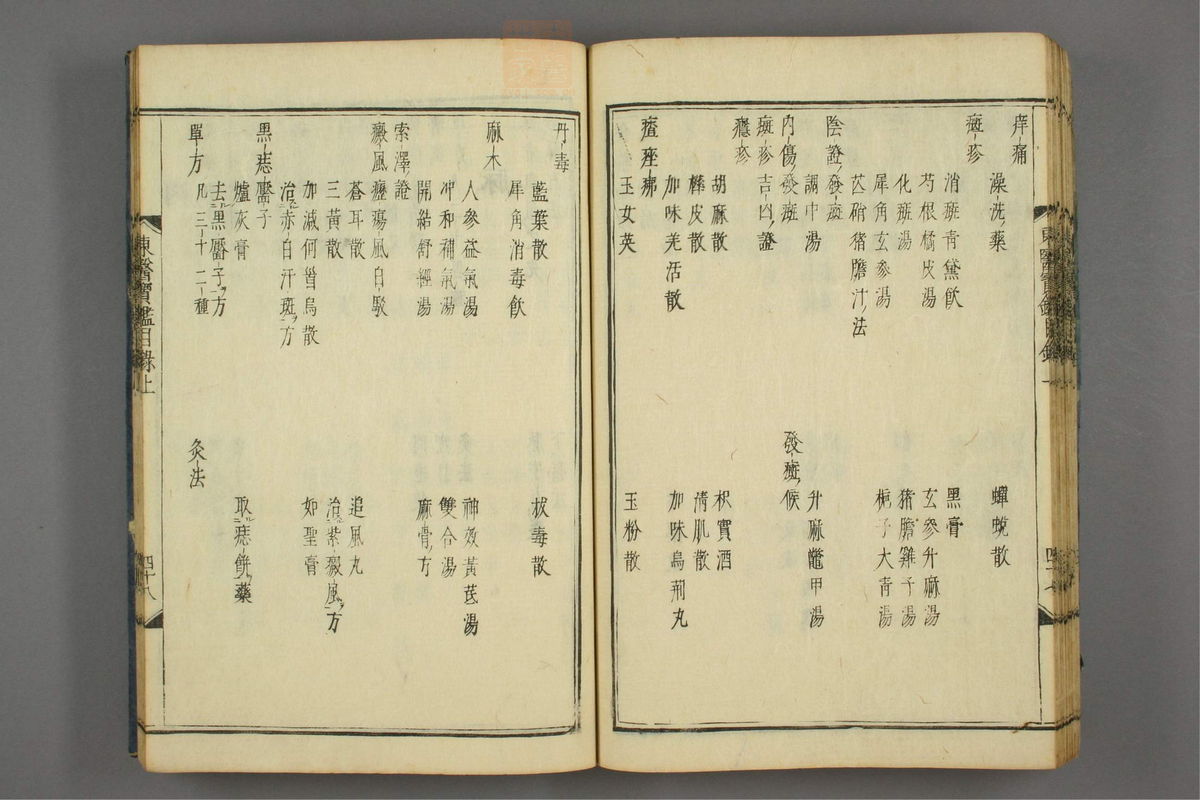 痒痛
澡洗藥
蟬蛻散
斑疹
消斑青黛飲
黑膏
芍根橘皮湯
玄參升麻湯
化斑湯
猪膽雞子湯
犀角玄參湯
梔子大青湯
苡硝猪膽汁法
陰證發斑
調中湯
升麻鼈甲湯
內傷發斑
發斑候
斑疹吉凶證
癮疹
胡麻散
枳實酒
樺皮散
清肌散
加味羌活散
加味烏荊丸
痤疿
玉女英
玉粉散
東醫寶鑑目錄
丹毒
藍葉散
拔毒散
犀角消毒飲
麻木
人參益氣湯
神效黃芪湯
冲和補氣湯
雙合湯
開結舒經湯
麻骨方
索澤證
癜風癧瘍風白駁
蒼耳散
追風丸
三黃散
治紫癜風方
加減何首烏散
如聖膏
治赤白汗斑方
黑痣靨子
爐灰膏
取痣餅藥
去黑靨子方
單方
凡三十二種
灸法
東醫寶鑑目錄上
四十八